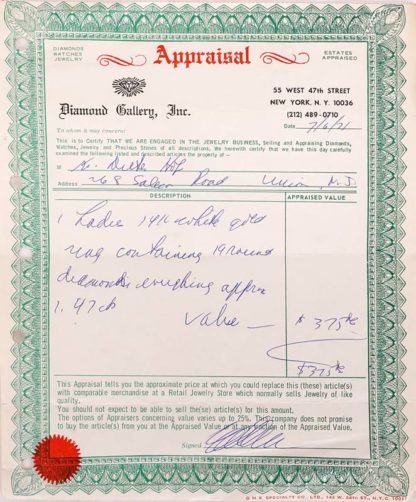 DIAMONDS
WATCHES
JEWELRY
Appraisal
ESTATES
APPRAISED
Diamond Gallery, Inc.
55 WEST 47th STREET
NEW YORK, N. Y. 10036
(212) 489-0710
Date 7/6/71
To whom it may concern:
This is to Certify THAT WE ARE ENGAGED IN THE JEWELRY BUSINESS, Selling and Appraising Diamonds,
Watches, Jewelry and Precious Stones of all descriptions. We herewith certify that we have this day carefully
examined the following listed and described articles the property of —
M
Address 268 Salem Road Union, N.J.
DESCRIPTION
APPRAISED VALUE
1 Ladies 14K white gold
ring containing 19 round
diamonds weighing approx
1.47ct
Value — $375
$375
This Appraisal tells you the approximate price at which you could replace this (these) article(s)
with comparable merchandise at a Retail Jewelry Store which normally sells Jewelry of like
quality.
You should not expect to be able to sell the(se) article(s) for this amount.
The options of Appraisers concerning value varies up to 25%. This company does not promise
to buy the article(s) from you at the Appraised Value or at any fraction of the Appraised Value,
Signed